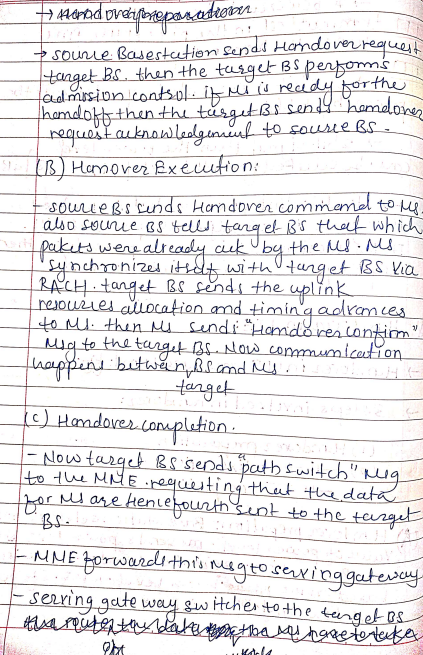 → Handover preparation
→ source Basestation sends Handover request
target BS. then the target BS performs
admission control. if MS is ready for the
handoff then the target BS sends handover
request acknowledgement to source BS.
(B) Hanover Execution:
- source BS sends Handover command to MS.
also source BS tells target BS that which
pakets were already ack by the MS. MS
synchronizes itself with target BS via
RACH. target BS sends the uplink
resources allocation and timing advances
to MS. then MS sends "Handover confirm"
Msg to the target BS. Now communication
happens between BS and MS.
target
(C) Handover completion.
- Now target BS sends "path switch" Msg
to the MME requesting that the data
for MS are Hencefourth sent to the target
BS.
- MME forwards this Msg to serving gateway
- serving gateway switches to the target BS